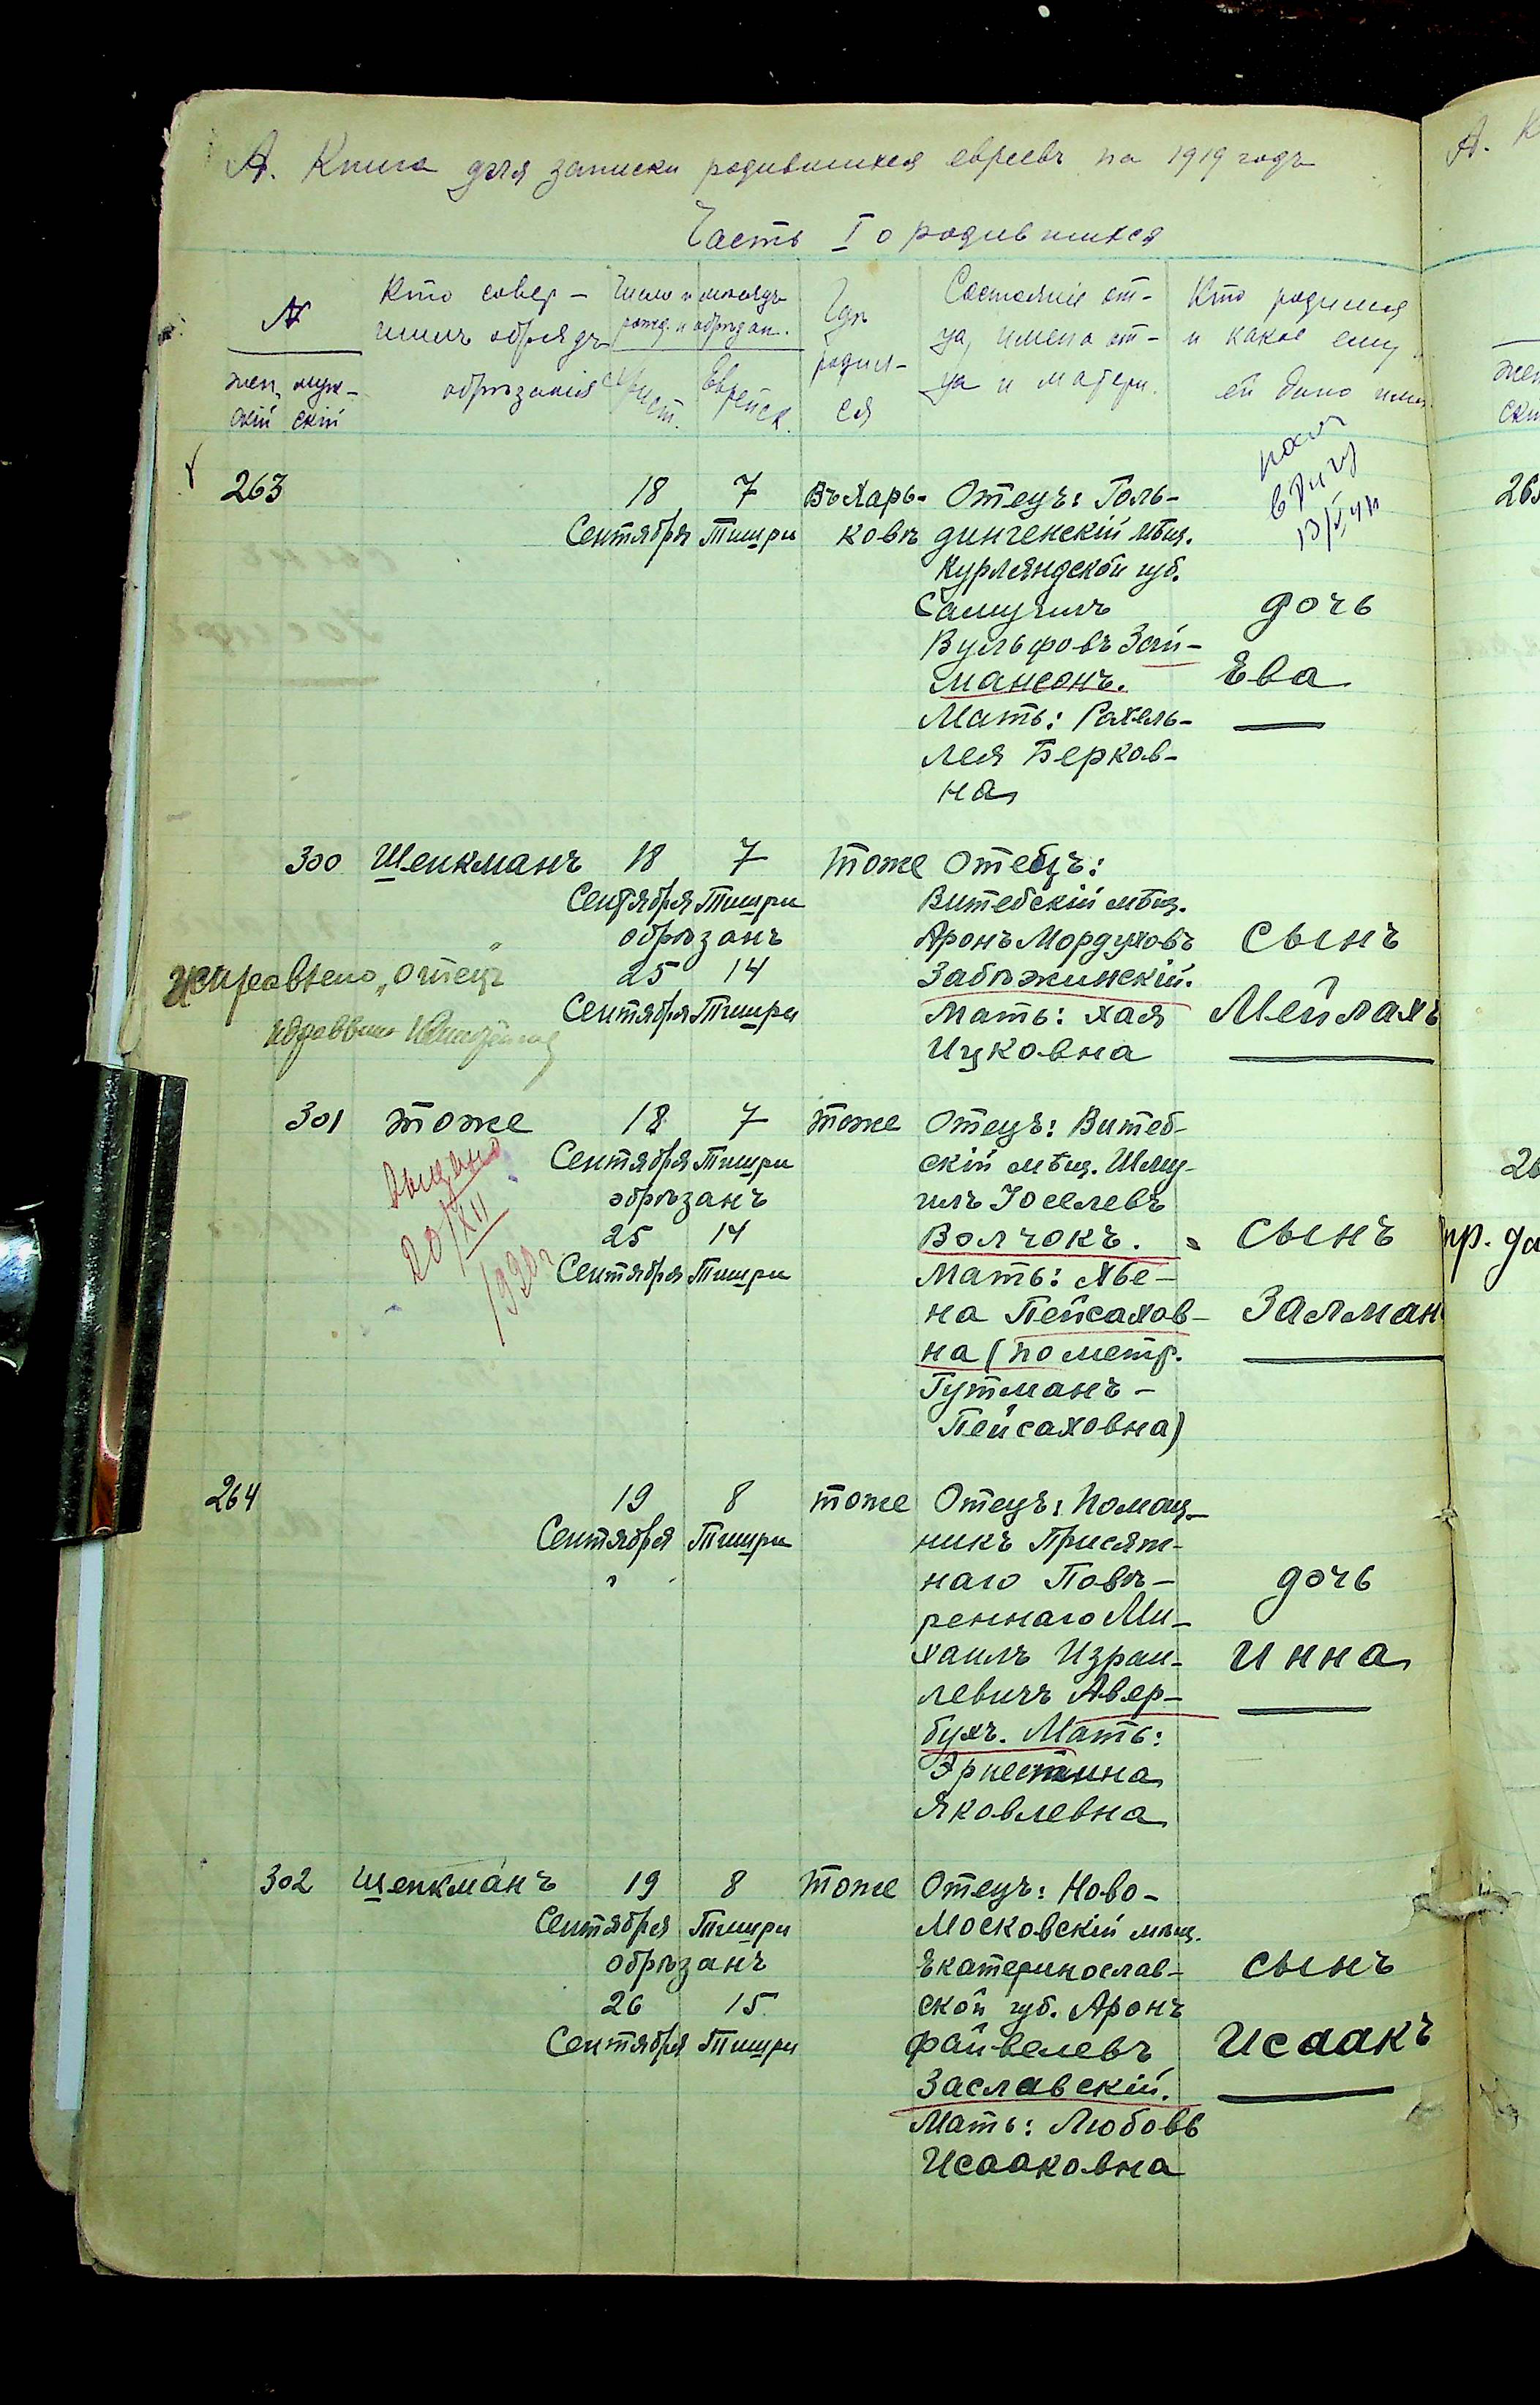 А. Книга для записки родившихся евреевъ на 1919 годъ
Часть I о родившихся
№
жен- муж-
скій скій
Кто совер-
шилъ обрядъ
обрѣзанія
Число и мѣсяцъ
рожд. и обрѣзан.
Христ. Еврейск.
Гдѣ
родил-
ся
Состояніе от-
ца, имена от-
ца и матери.
Кто родился
и какое ему
ей дано имя
263
18 7
Сентября Тишри
Въ Харь-
ковѣ
Отецъ: Голь-
дингенскій мѣщ.
Курляндской губ.
Самуилъ
Вульфовъ Зай-
мансонъ.
Мать: Рахель-
Лея Берков-
на
в Ригу
дочь
Ева
300 Шенкманъ
18 7
Сентября Тишри
обрѣзанъ
25 14
Сентября Тишри
тоже
Отецъ:
Витебскій мѣщ.
Аронъ Мордуховъ
Забѣжинскій.
Мать: Хая
Ицковна
сынъ
Мейлахъ
Исправлено „Отецъ"
301 тоже
18 7
Сентября Тишри
обрѣзанъ
25 14
Сентября Тишри
тоже
Отецъ: Витеб-
скій мѣщ. Шму-
илъ Іоселевъ
Волчокъ.
Мать: Хье-
на Пейсахов-
на (по метр.
Гутманъ-
Пейсаховна)
сынъ
Залман
Выдано
20/XII
1920г
264
19 8
Сентября Тишри
тоже
Отецъ: Помощ-
никъ Присяж-
наго Повѣ-
реннаго Ми-
хаилъ Израи-
левичъ Авер-
бухъ. Мать:
Эрнестина
Яковлевна
дочь
Инна
302 Шенкманъ
19 8
Сентября Тишри
обрѣзанъ
26 15
Сентября Тишри
тоже
Отецъ: Ново-
Московскій мѣщ.
Екатеринослав-
ской губ. Аронъ
Файвелевъ
Заславскій.
Мать: Любовь
Исааковна
сынъ
Исаакъ
А. К